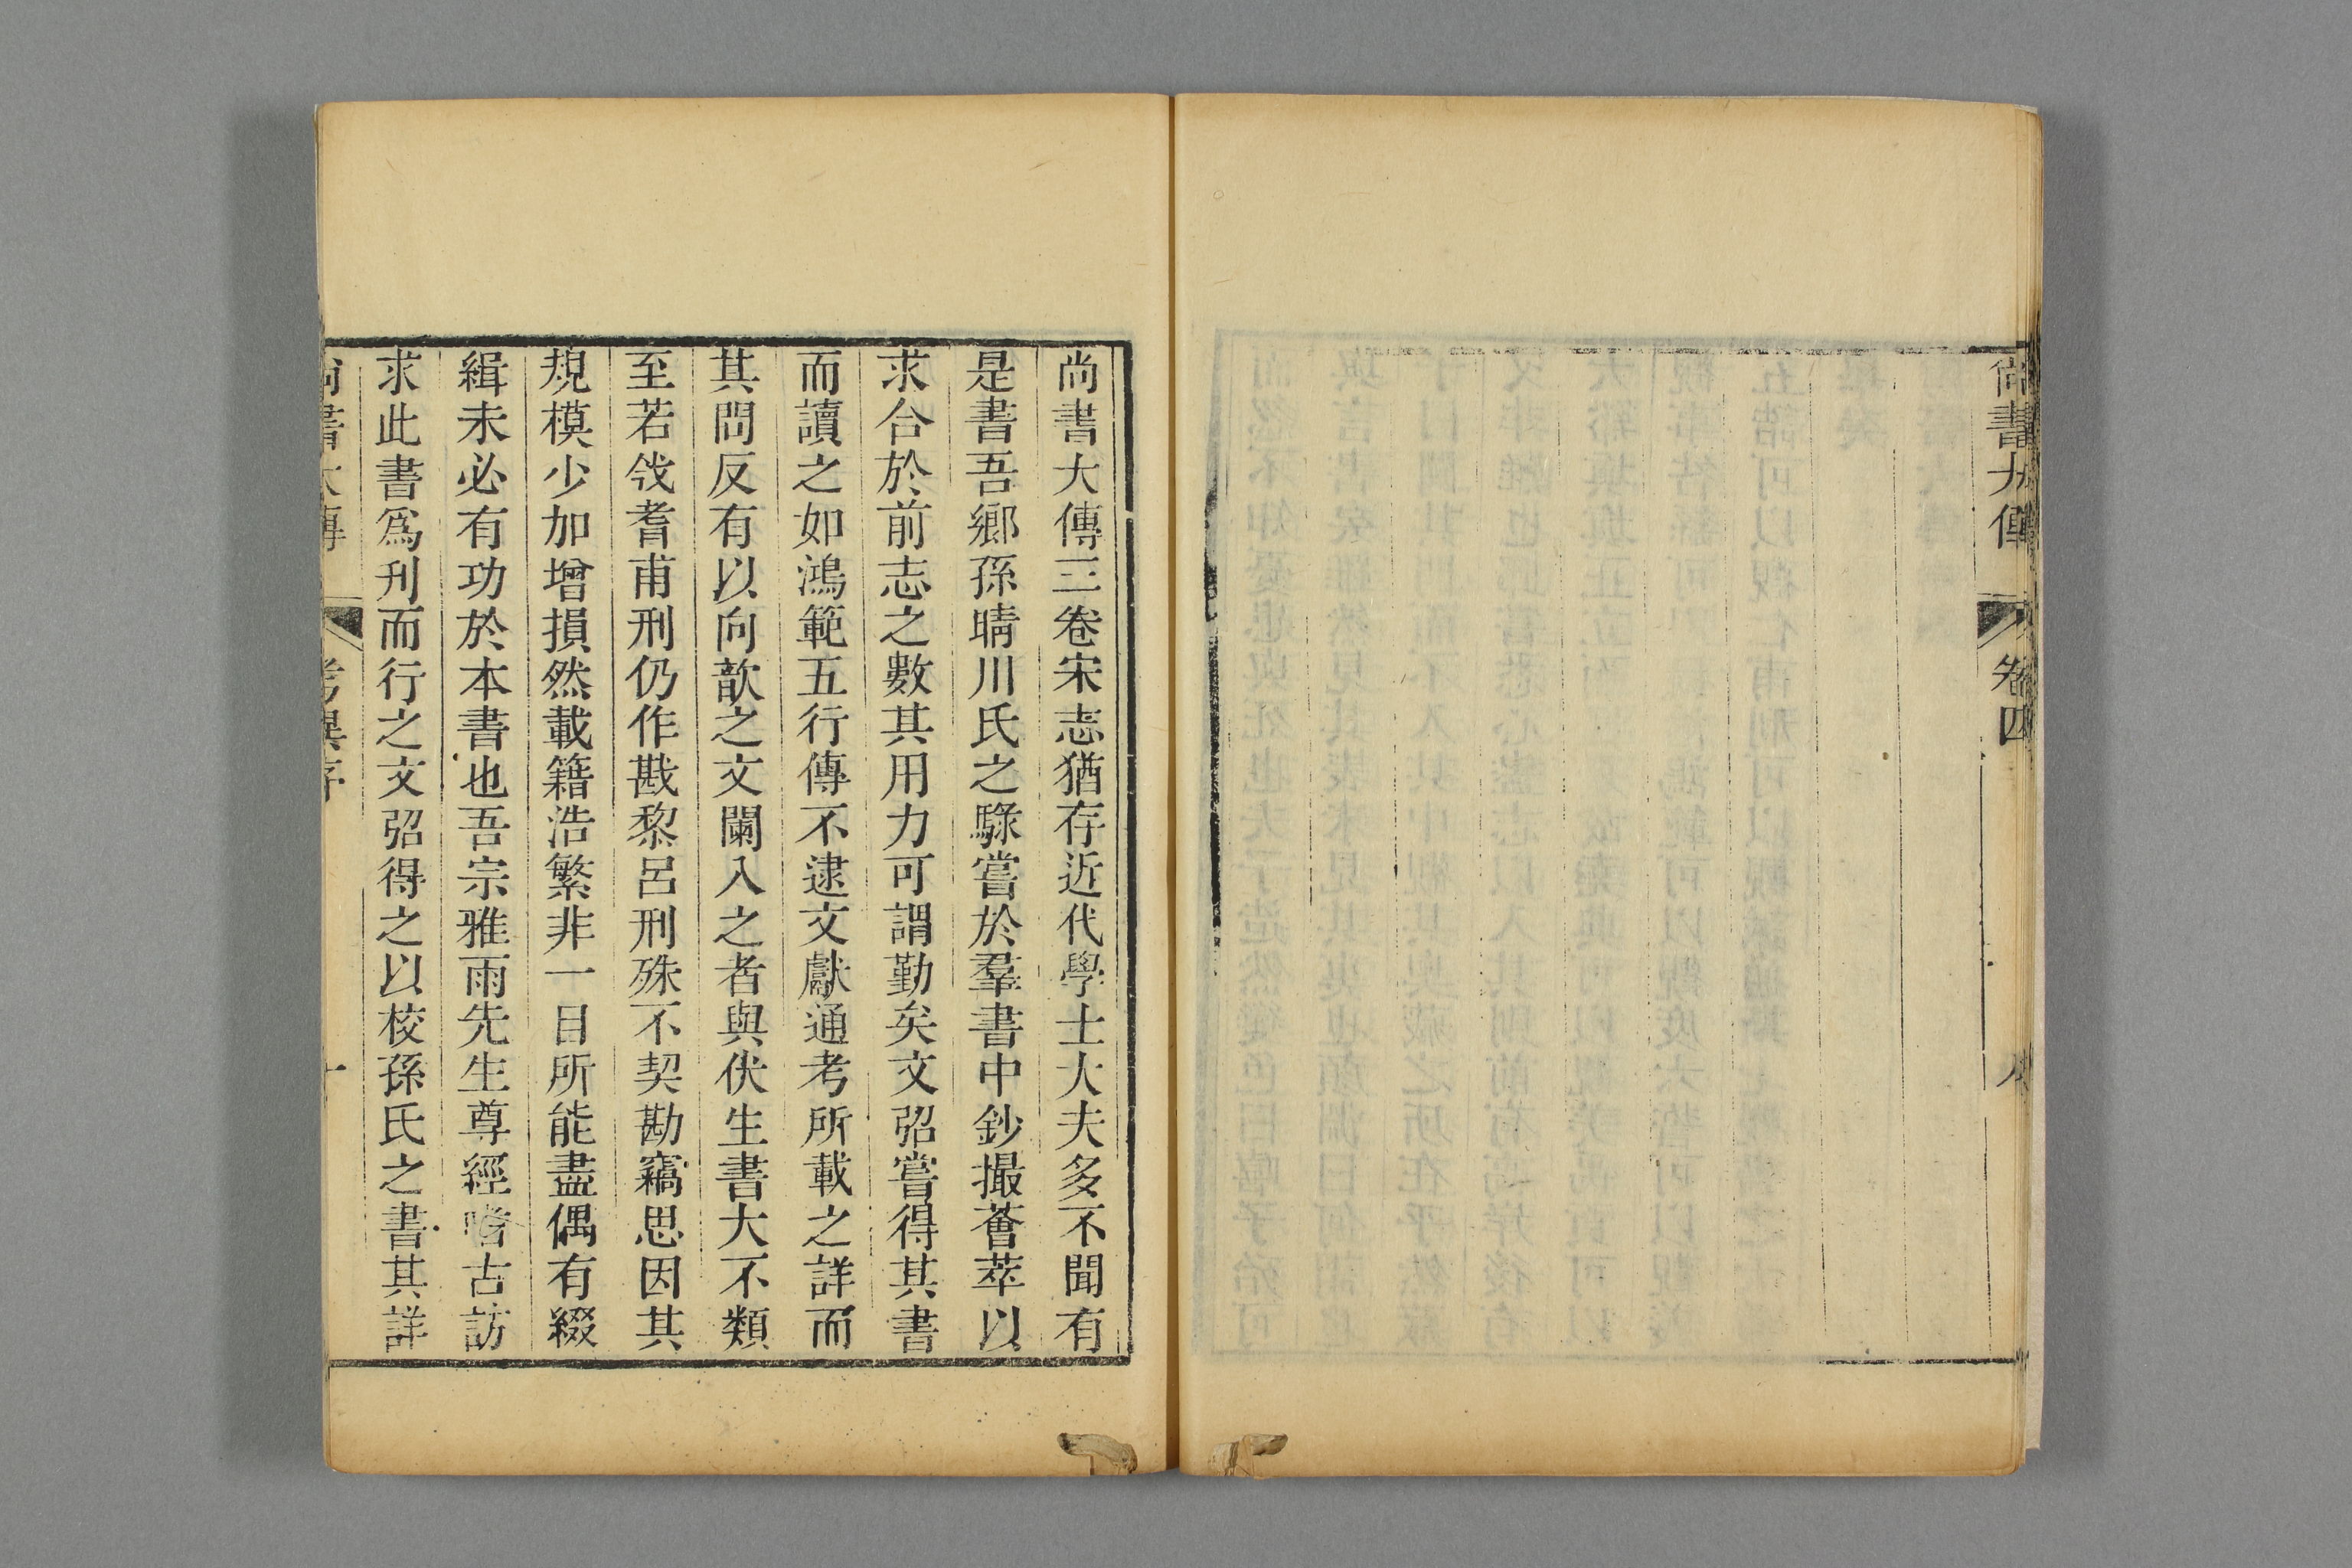 尚書大傳
卷四
八
尚書大傳三卷宋志猶存近代學士大夫多不聞有
是書吾鄉孫晴川氏之騄嘗於羣書中鈔撮薈萃以
求合於前志之數其用力可謂勤矣文弨嘗得其書
而讀之如鴻範五行傳不逮文獻通考所載之詳而
其問反有以向歆之文闌入之者與伏生書大不類
至若㐹耆甫刑仍作戡黎呂刑殊不契勘竊思因其
規模少加增損然載籍浩繁非一目所能盡偶有綴
緝未必有功於本書也吾宗雅雨先生尊經嗜古訪
求此書爲刋而行之文弨得之以校孫氏之書其詳
尚書大傳
考異序
一